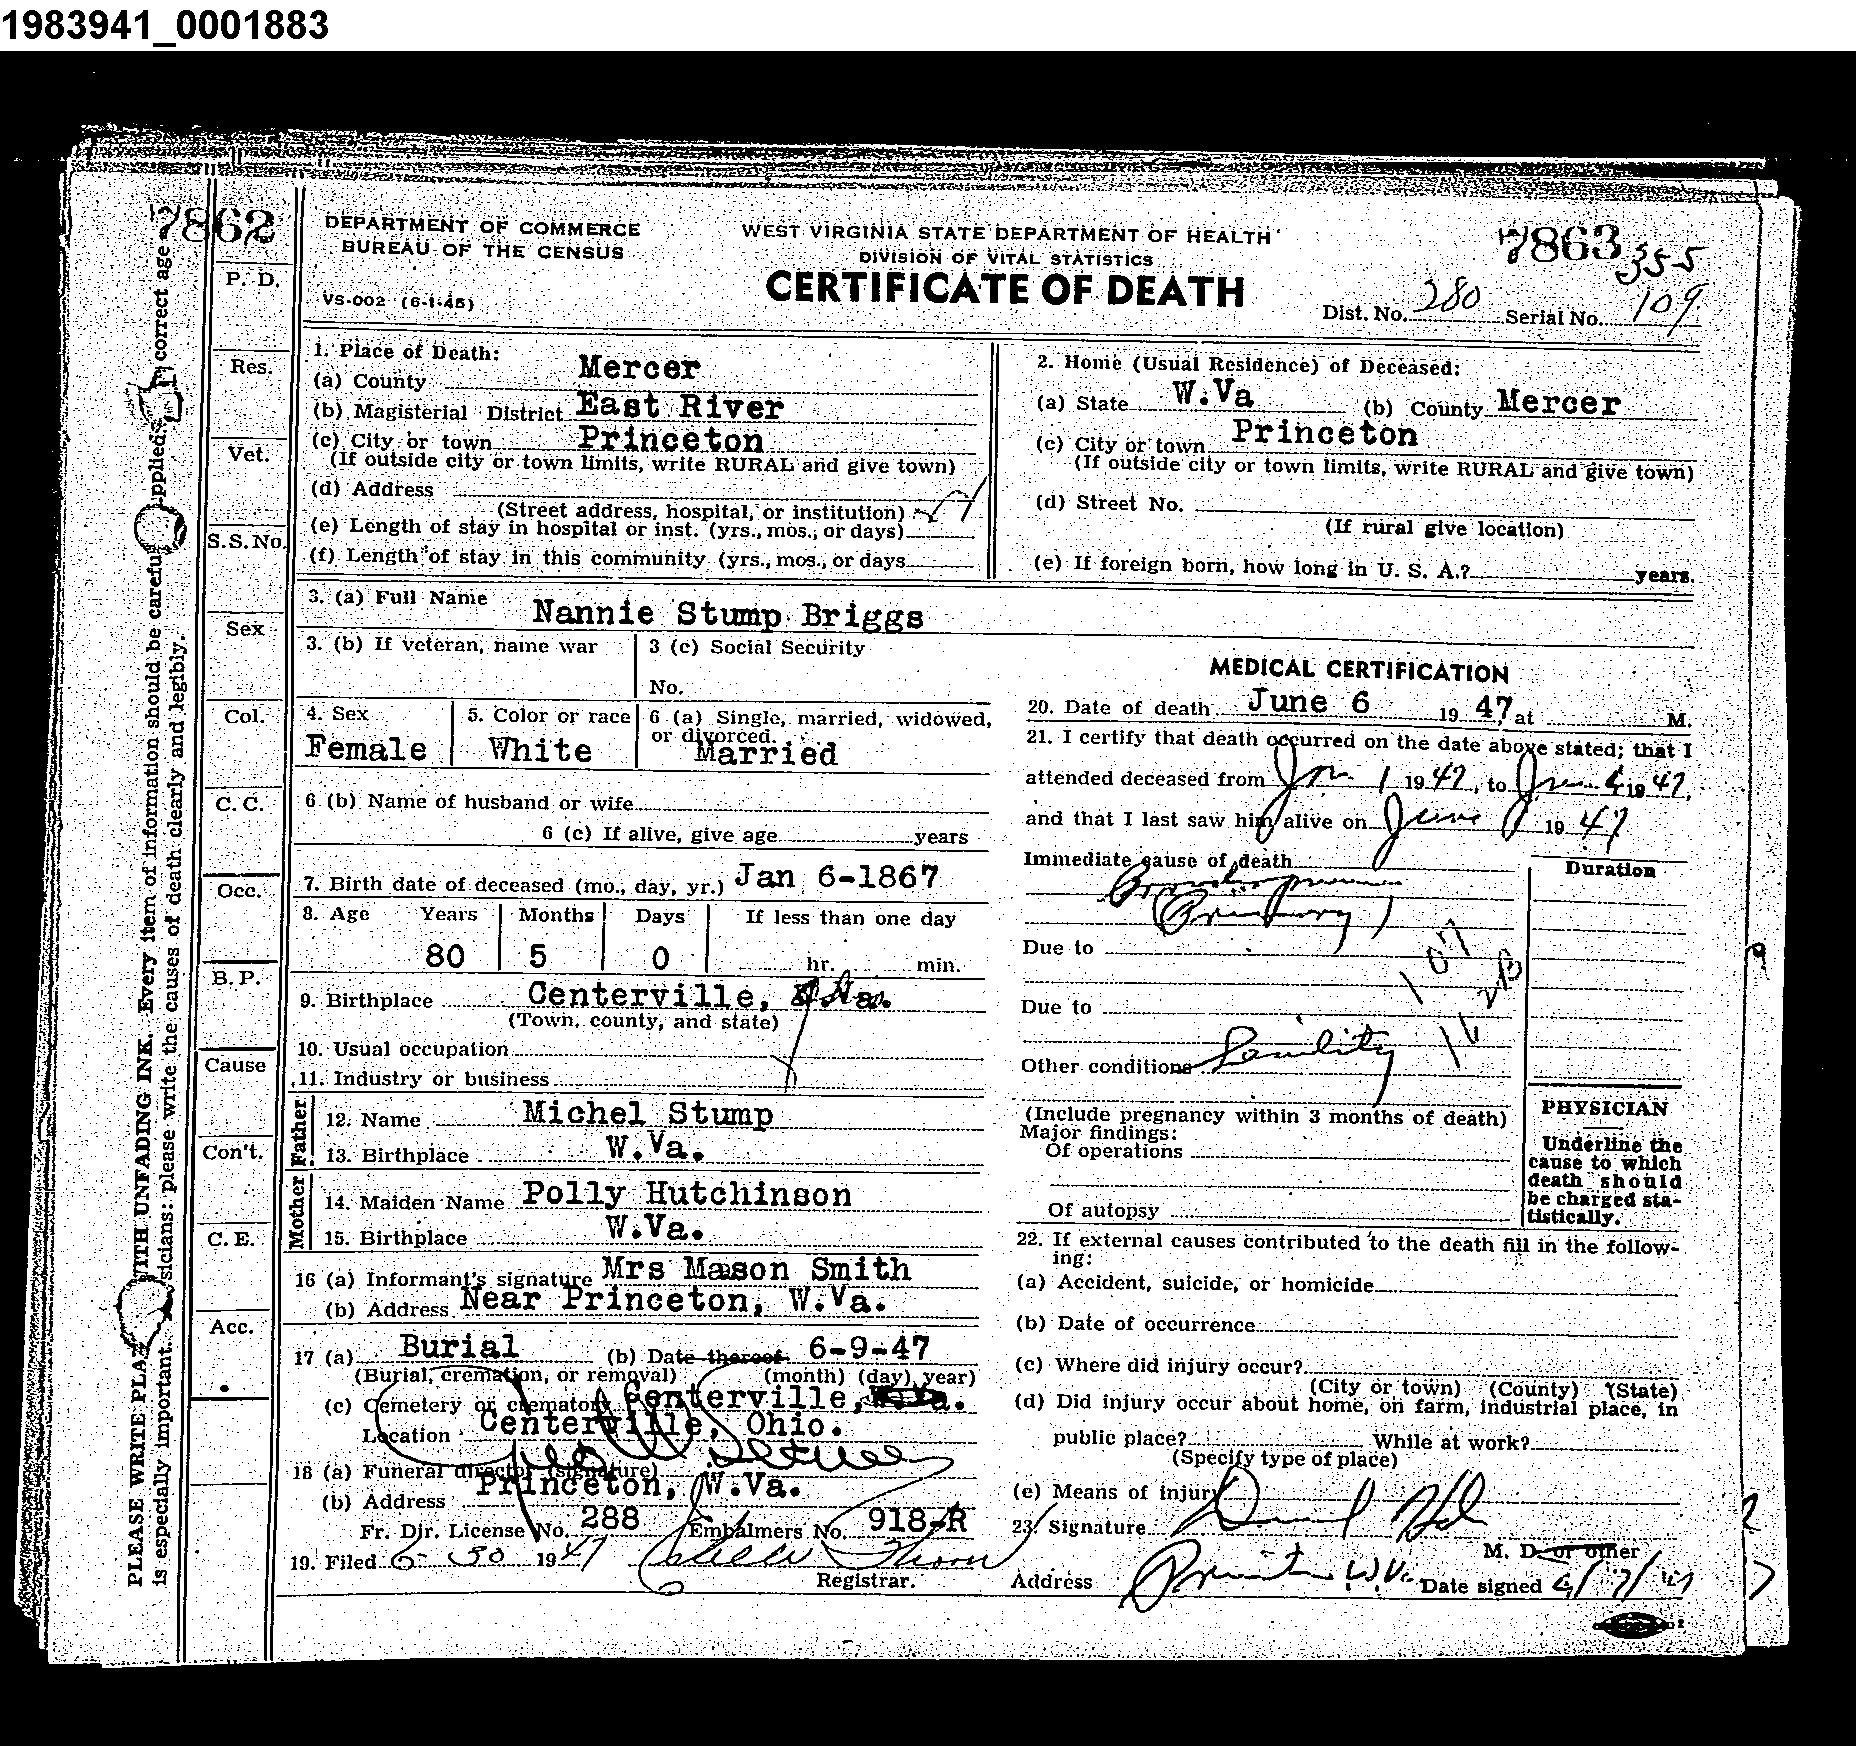 1983941_0001883
7862
DEPARTMENT OF COMMERCE
BUREAU OF THE CENSUS
VS-002 (6-1-45)
WEST VIRGINIA STATE DEPARTMENT OF HEALTH
DIVISION OF VITAL STATISTICS
CERTIFICATE OF DEATH
7863 355
Dist. No. 280 Serial No. 109
P. D.
Res.
Vet.
S.S.No.
Sex
Col.
C. C.
Occ.
B. P.
Cause
Con't.
C. E.
Acc.
PLEASE WRITE WITH UNFADING INK. Every item of information should be carefu pplied. correct age
is especially important. sicians: please write the causes of death clearly and legibly.
1. Place of Death:
(a) County Mercer
(b) Magisterial District East River
(c) City or town Princeton
(If outside city or town limits, write RURAL and give town)
(d) Address
(Street address, hospital, or institution)
(e) Length of stay in hospital or inst. (yrs., mos., or days)
(f) Length of stay in this community (yrs., mos., or days
2. Home (Usual Residence) of Deceased:
(a) State W.Va (b) County Mercer
(c) City or town Princeton
(If outside city or town limits, write RURAL and give town)
(d) Street No.
(If rural give location)
(e) If foreign born, how long in U. S. A.? years.
3. (a) Full Name Nannie Stump Briggs
3. (b) If veteran, name war
3 (c) Social Security
No.
4. Sex Female
5. Color or race White
6 (a) Single, married, widowed,
or divorced. Married
6 (b) Name of husband or wife
6 (c) If alive, give age years
7. Birth date of deceased (mo., day, yr.) Jan 6-1867
8. Age Years Months Days If less than one day
80 5 0 hr. min.
9. Birthplace Centerville,
(Town, county, and state)
10. Usual occupation
11. Industry or business
Father
12. Name Michel Stump
13. Birthplace W.Va.
Mother
14. Maiden Name Polly Hutchinson
15. Birthplace W.Va.
16 (a) Informant's signature Mrs Mason Smith
(b) Address Near Princeton, W.Va.
17 (a) Burial (b) Date thereof 6-9-47
(Burial, cremation, or removal) (month) (day) year)
(c) Cemetery or crematory Centerville,
Location Centerville, Ohio.
18 (a) Funeral director (signature)
(b) Address Princeton, W.Va.
Fr. Dir. License No. 288 Embalmers No. 918-R
19. Filed 6-30 1947
Registrar.
MEDICAL CERTIFICATION
20. Date of death June 6 1947, at M.
21. I certify that death occurred on the date above stated; that I
attended deceased from 1 1947, to June 6 1947,
and that I last saw him alive on June 1947
Immediate cause of death Duration
Due to
107
Due to
Other conditions Senility
(Include pregnancy within 3 months of death)
Major findings:
Of operations
Of autopsy
PHYSICIAN
Underline the
cause to which
death should
be charged sta-
tistically.
22. If external causes contributed to the death fill in the follow-
ing:
(a) Accident, suicide, or homicide
(b) Date of occurrence
(c) Where did injury occur?
(City or town) (County) (State)
(d) Did injury occur about home, on farm, industrial place, in
public place? While at work?
(Specify type of place)
(e) Means of injury
23. Signature
M. D. or other
Address Princeton W.Va. Date signed 6/7/47